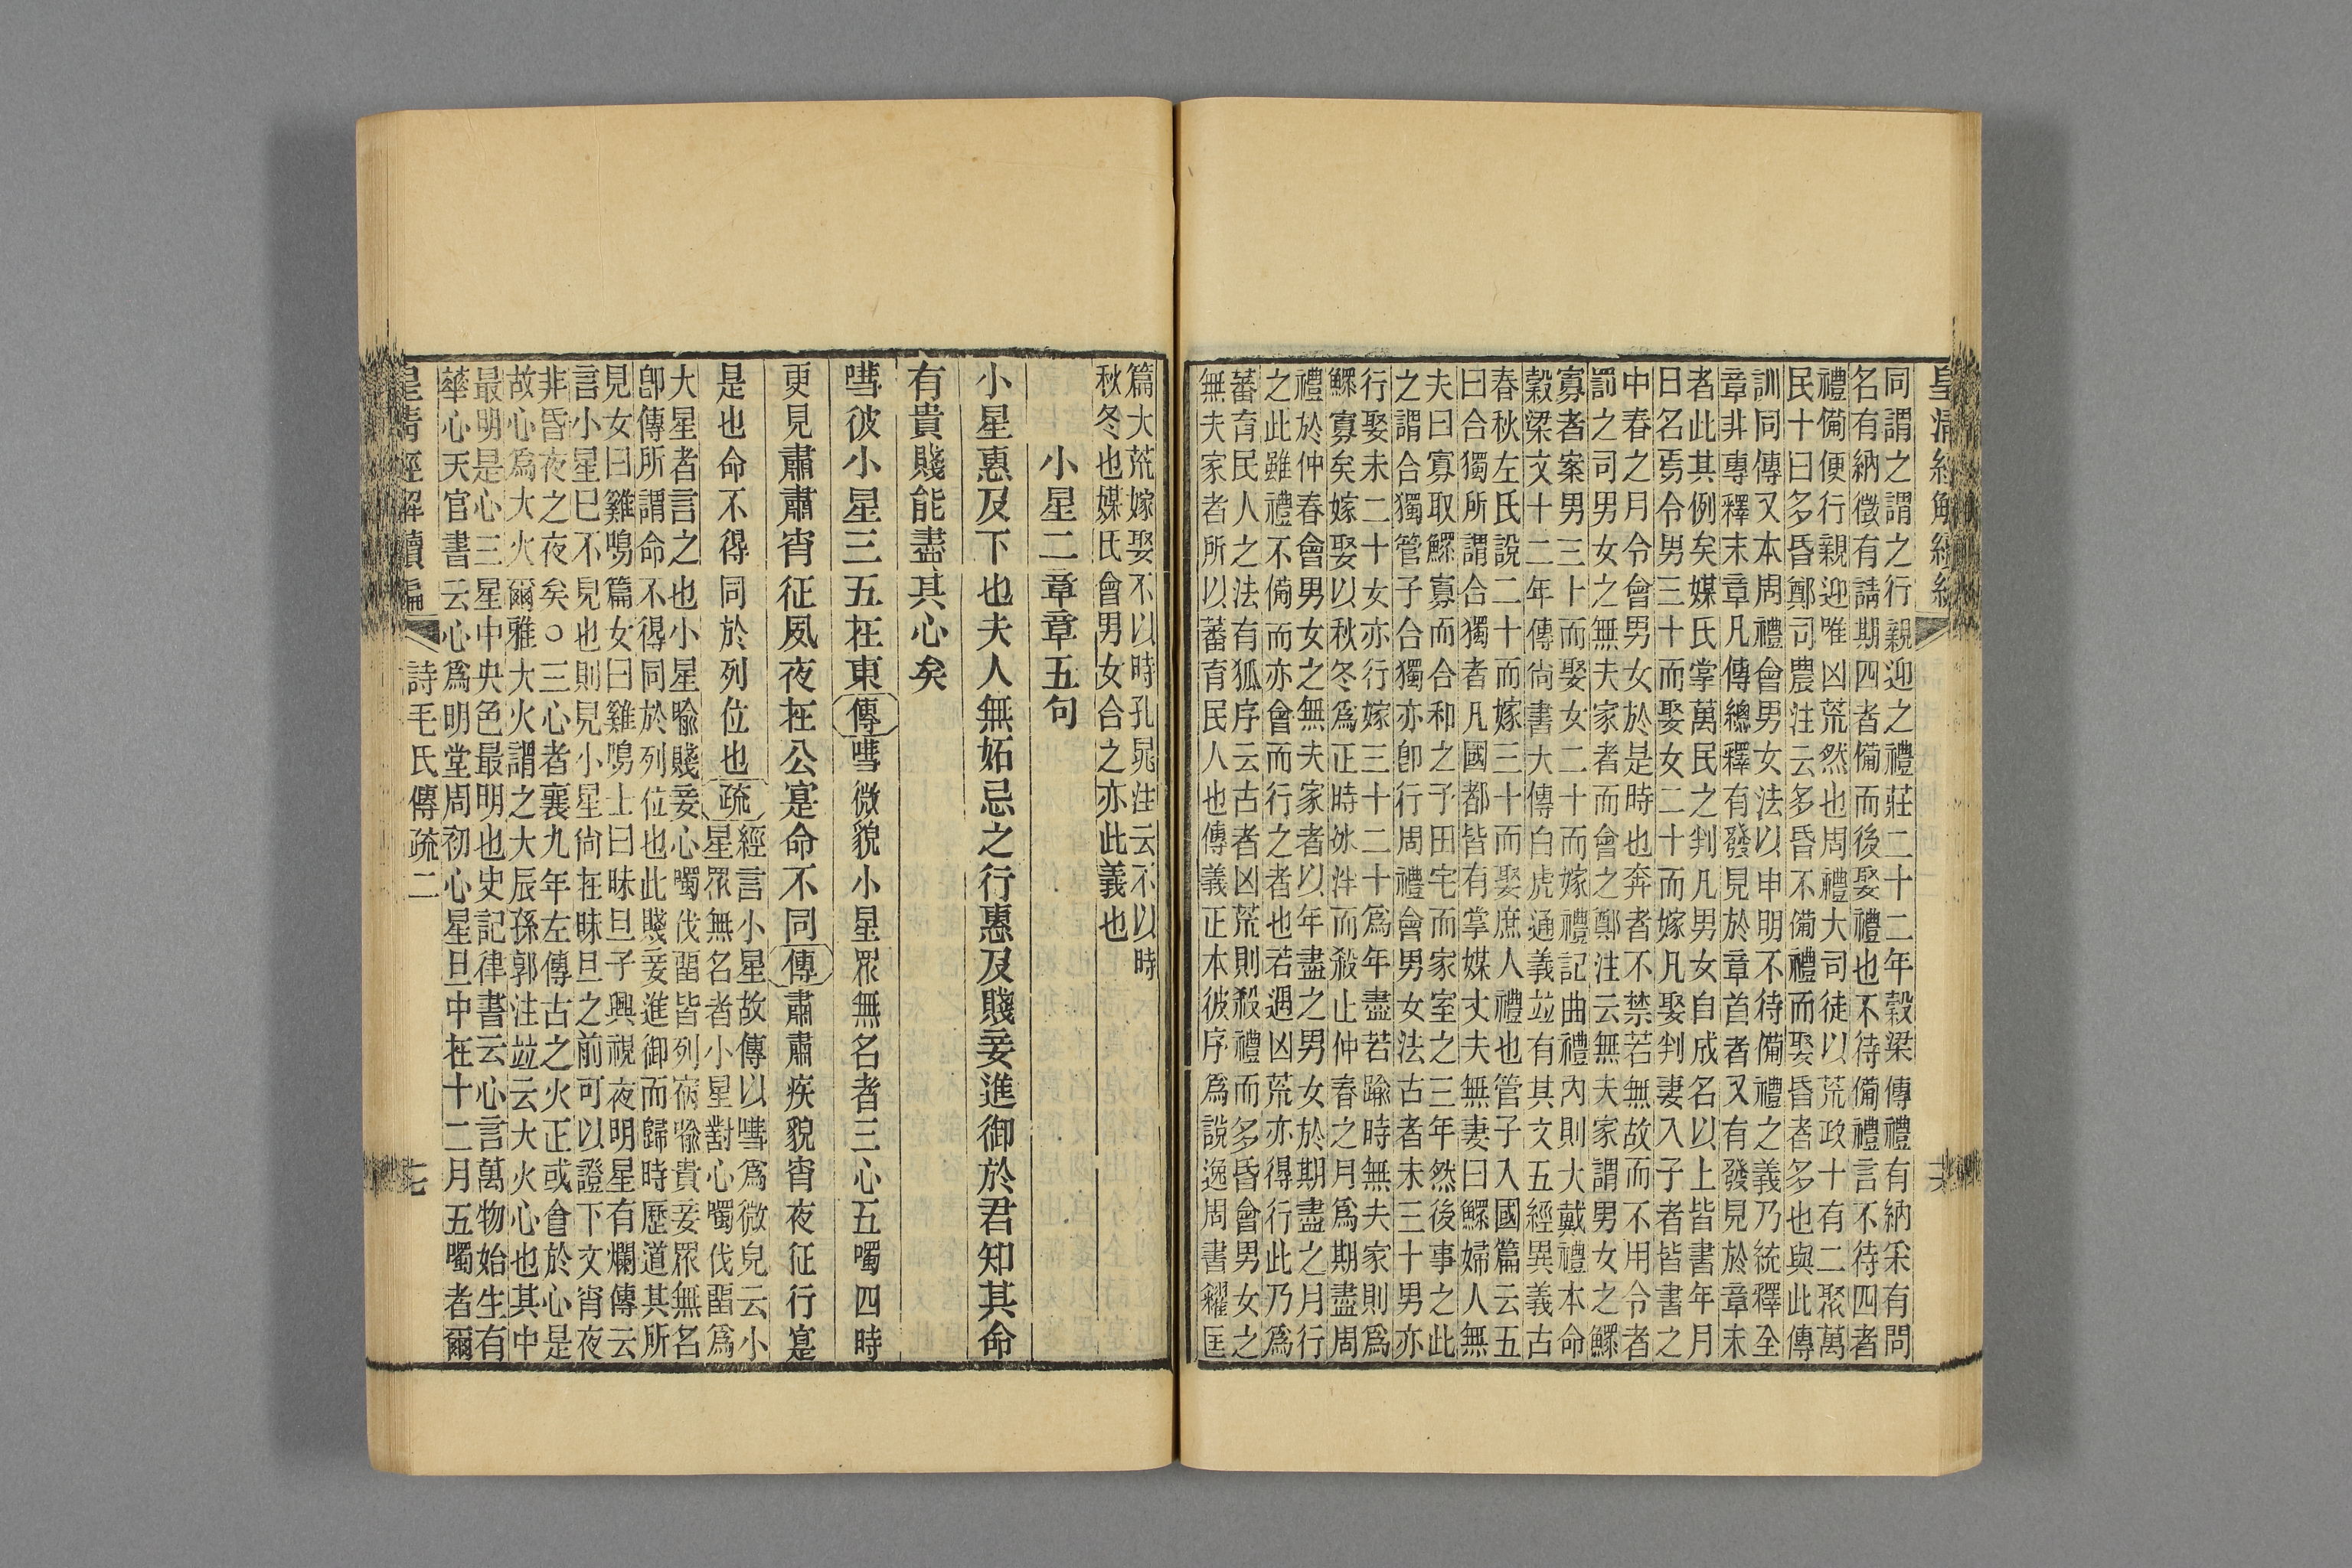 皇清經解
同謂之謂之行親迎之禮莊二十二年穀梁傳禮有納采有問
名有納徵有請期四者備而後娶禮也不待備禮言不待四者
禮備便行親迎唯凶荒然也周禮大司徒以荒政十有二聚萬
民十曰多昏鄭司農注云多昏不備禮而娶昏者多也與此傳
訓同傳又本周禮會男女法以申明不待備禮之義乃統釋全
章非專釋末章凡傳總釋有發見於章首者又有發見於章末
者此其例矣媒氏掌萬民之判凡男女自成名以上皆書年月
日名焉令男三十而娶女二十而嫁凡娶判妻入子者皆書之
中春之月令會男女於是時也奔者不禁若無故而不用令者
罰之司男女之無夫家者而會之鄭注云無夫家謂男女之鰥
寡者案男三十而娶女二十而嫁禮記曲禮內則大戴禮本命
穀梁文十二年傳尙書大傳白虎通義竝有其文五經異義古
春秋左氏說二十而嫁三十而娶庶人禮也管子入國篇云五
曰合獨所謂合獨者凡國都皆有掌媒丈夫無妻曰鰥婦人無
夫曰寡取鰥寡而合和之予田宅而家室之三年然後事之此
之謂合獨管子合獨亦卽行周禮會男女法古者未三十男亦
行娶未二十女亦行嫁三十二十爲年盡若踰時無夫家則爲
鰥寡矣嫁娶以秋冬爲正時冰泮而殺止仲春之月爲期盡周
禮於仲春會男女之無夫家者以年盡之男女於期盡之月行
之此雖禮不備而亦會而行之者也若遇凶荒亦得行此乃爲
蕃育民人之法有狐序云古者凶荒則殺禮而多昏會男女之
無夫家者所以蕃育民人也傳義正本彼序爲說逸周書糴匡
篇大荒嫁娶不以時孔晁注云不以時
秋冬也媒氏會男女合之亦此義也
小星二章章五句
小星惠及下也夫人無妬忌之行惠及賤妾進御於君知其命
有貴賤能盡其心矣
嘒彼小星三五在東傳嘒微貌小星眾無名者三心五噣四時
更見肅肅宵征夙夜在公寔命不同傳肅肅疾貌宵夜征行寔
是也命不得同於列位也疏
經言小星故傳以嘒爲微皃云小
星眾無名者小星對心噣伐畱爲
大星者言之也小星喩賤妾心噣伐畱皆列宿喩貴妾眾無名
卽傳所謂命不得同於列位也此賤妾進御而歸時歷道其所
見女曰雞鳴篇女曰雞鳴士曰昧旦子興視夜明星有爛傳云
言小星巳不見也則見小星尙在昧旦之前可以證下文宵夜
非昏夜之夜矣○三心者襄九年左傳古之火正或食於心是
故心爲大火爾雅大火謂之大辰孫郭注竝云大火心也其中
最明是心三星中央色最明也史記律書云心言萬物始生有
華心天官書云心爲明堂周初心星旦中在十二月五噣者爾
皇清經解續編
詩毛氏傳疏二
七